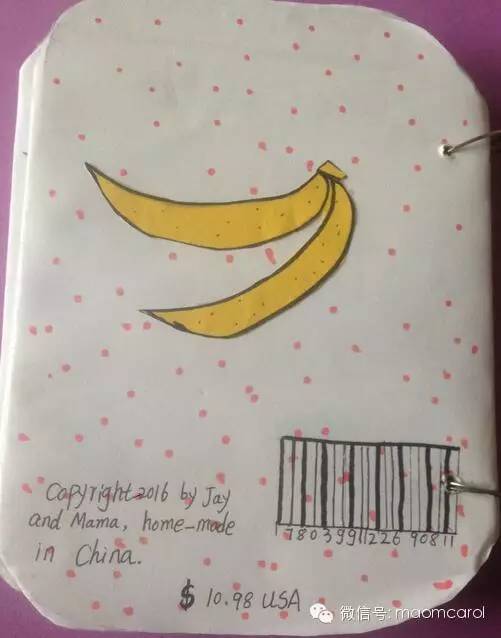 Copyright 2016 by Jay
and Mama, home-made
in China.
1780399112269 0811
$ 10.98 USA
微信号: maomcarol